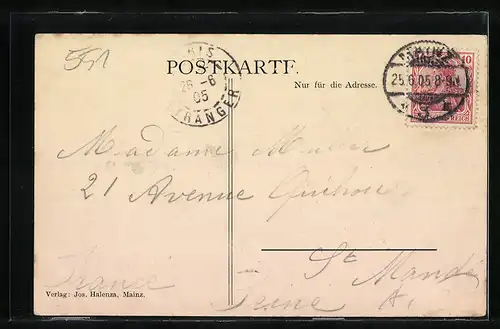 551
POSTKARTE.
Nur für die Adresse.
PARIS
26 -6
05
ETRANGER
MAINZ
25.6.05.8-9N
10
REICH
Madame
21 Avenue Quihou
St Mandé
France
Seine
Verlag: Jos. Halenza, Mainz.